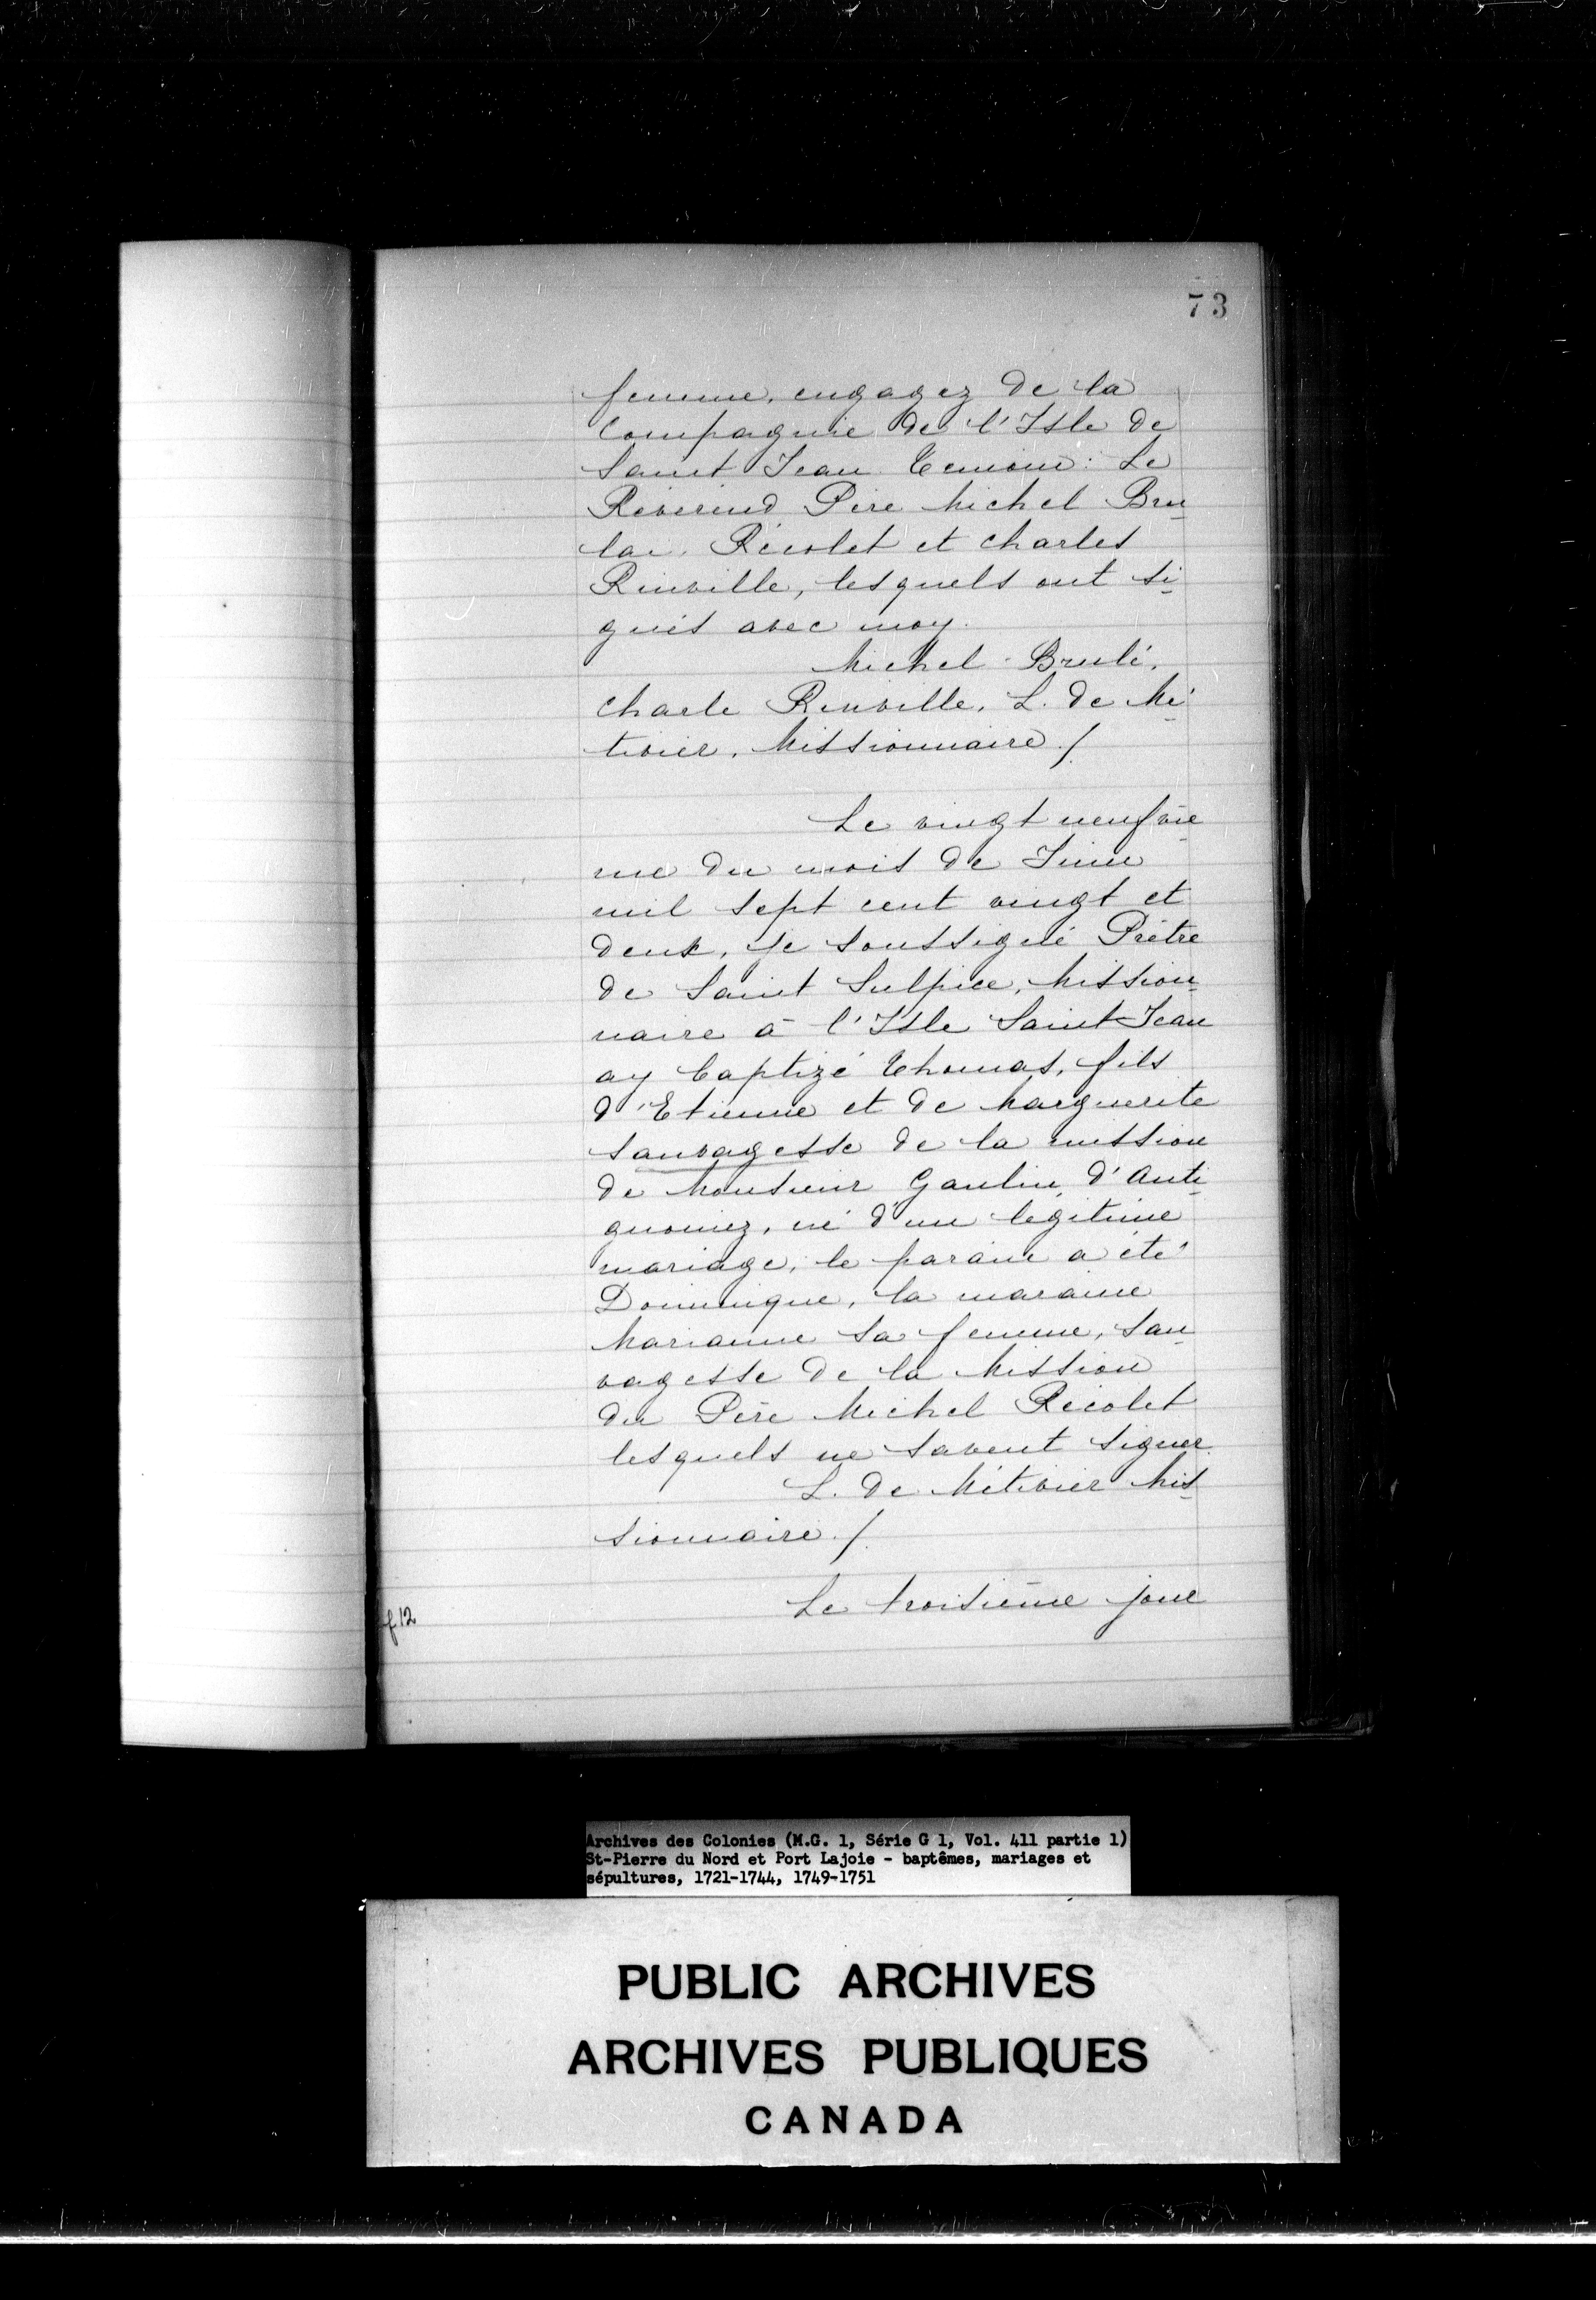 73
femme, engagez de la
Compagnie de l'Isle de
Saint Jean Temoins: Le
Réverend Pére Michel Bru-
lai Récolet et Charles
Rinville, lesquels ont si-
gnés avec moy.
Michel Brulé,
Charle Rinville, L. de Mé-
tivier, Missionnaire ./.
Le vingt neufvie-
me du mois de Juin
mil sept cent vingt et
deux, je soussigné Prêtre
de Saint Sulpice, Mission-
naire à l'Isle Saint-Jean
ay baptizé Thomas, fils
d'Etienne et de Marguerite
sauvagesse de la mission
de Monsieur Gaulin d'Anti-
gnoniez, né d'un legitime
mariage, le paraine a été
Dominique, la maraine
Marianne sa femme, sau-
vagesse de la Mission
du Pére Michel Récolet
lesquels ne savent signer
L. de Métivier Mis-
sionnaire ./.
f 12
Le troisième jour
Archives des Colonies (M.G. 1, Série G 1, Vol. 411 partie 1)
St-Pierre du Nord et Port Lajoie - baptêmes, mariages et
sépultures, 1721-1744, 1749-1751
PUBLIC ARCHIVES
ARCHIVES PUBLIQUES
CANADA